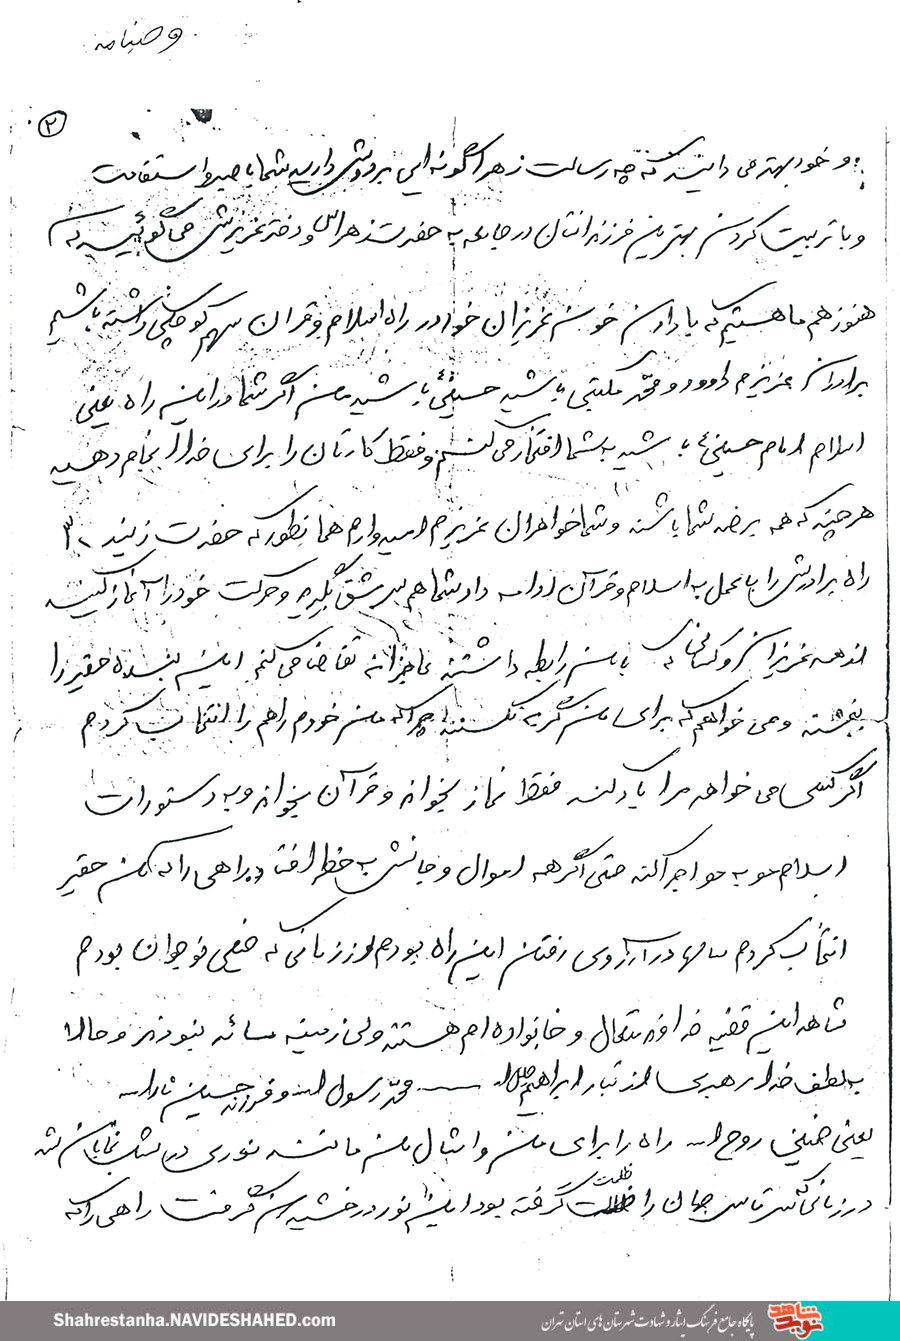 وصیتنامه
۲
و خود بهتر می دانید که چه رسالت زهرا گونه ایی بر دوش دارید شما با صبر و استقامت
و با تربیت کردن بهترین فرزندانتان در جامعه به حضرت زهرا (س) و دختر عزیزش می گوئید که
هنوز هم ما هستیم که با دادن خون عزیزان خود در راه اسلام و قرآن سهم کوچکی داشته باشیم
برادران عزیزم داوود و محمد مکتبی باشید حسینی باشید من اگر شما در این راه یعنی
اسلام امام حسینی باشید به شما افتخار می کنم و فقط کارتان را برای خدا انجام دهید
هر چند که همه بر ضد شما باشند و شما خواهران عزیزم امیدوارم همانطور که حضرت زینب
راه برادرش را با عمل به اسلام و قرآن ادامه داد شما هم سرمشق بگیرید و حرکت خود را آغاز کنید
از همه عزیزان و کسانی که با من رابطه داشتند عاجزانه تقاضا می کنم این بنده حقیر را
بخشند و می خواهم که برای من گریه نکنند چرا که من خودم راهم را انتخاب کردم
اگر کسی می خواهد مرا یاد کند فقط نماز بخواند و قرآن بخواند و به دستورات
اسلام مو به مو اجرا کند حتی اگر همه اموال و جانش به خطر افتد راهی را که من حقیر
انتخاب کردم سالها در آرزوی رفتن این راه بودم از زمانی که خیلی نوجوان بودم
شاهد این قضیه خداوند متعال و خانواده ام هستند ولی زمینه مسائد نبود و حالا
به لطف خدا رهبری از تبار ابراهیم خلیل الله محمد رسول الله و فرزند حسین ثارالله
یعنی خمینی روح الله راه را برای من و امثال من مانند نوری در شب نمایان شد
در زمانی که سرتاسر جهان را ظلمت گرفته بود این نور درخشیدن گرفت راهی را که
Shahrestanha.NAVIDESHAHED.com
پایگاه جامع فرهنگ ایثار و شهادت شهرستان های استان تهران
نوید شاهد